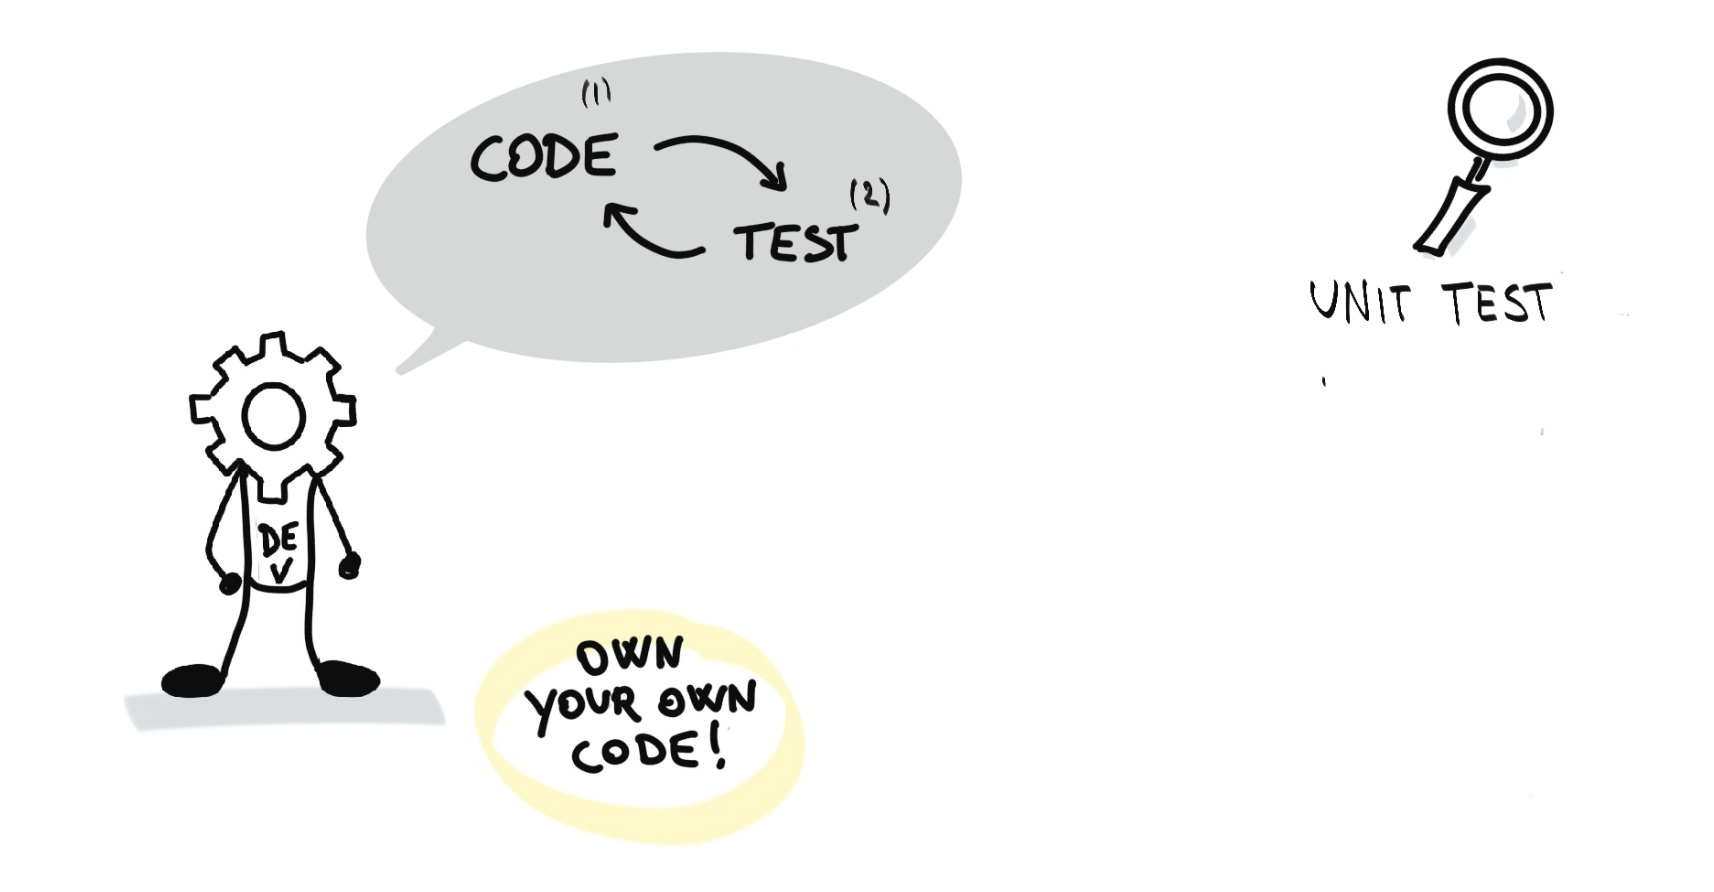 (1)
CODE
(2)
TEST
UNIT TEST
DE
V
OWN
YOUR OWN
CODE!